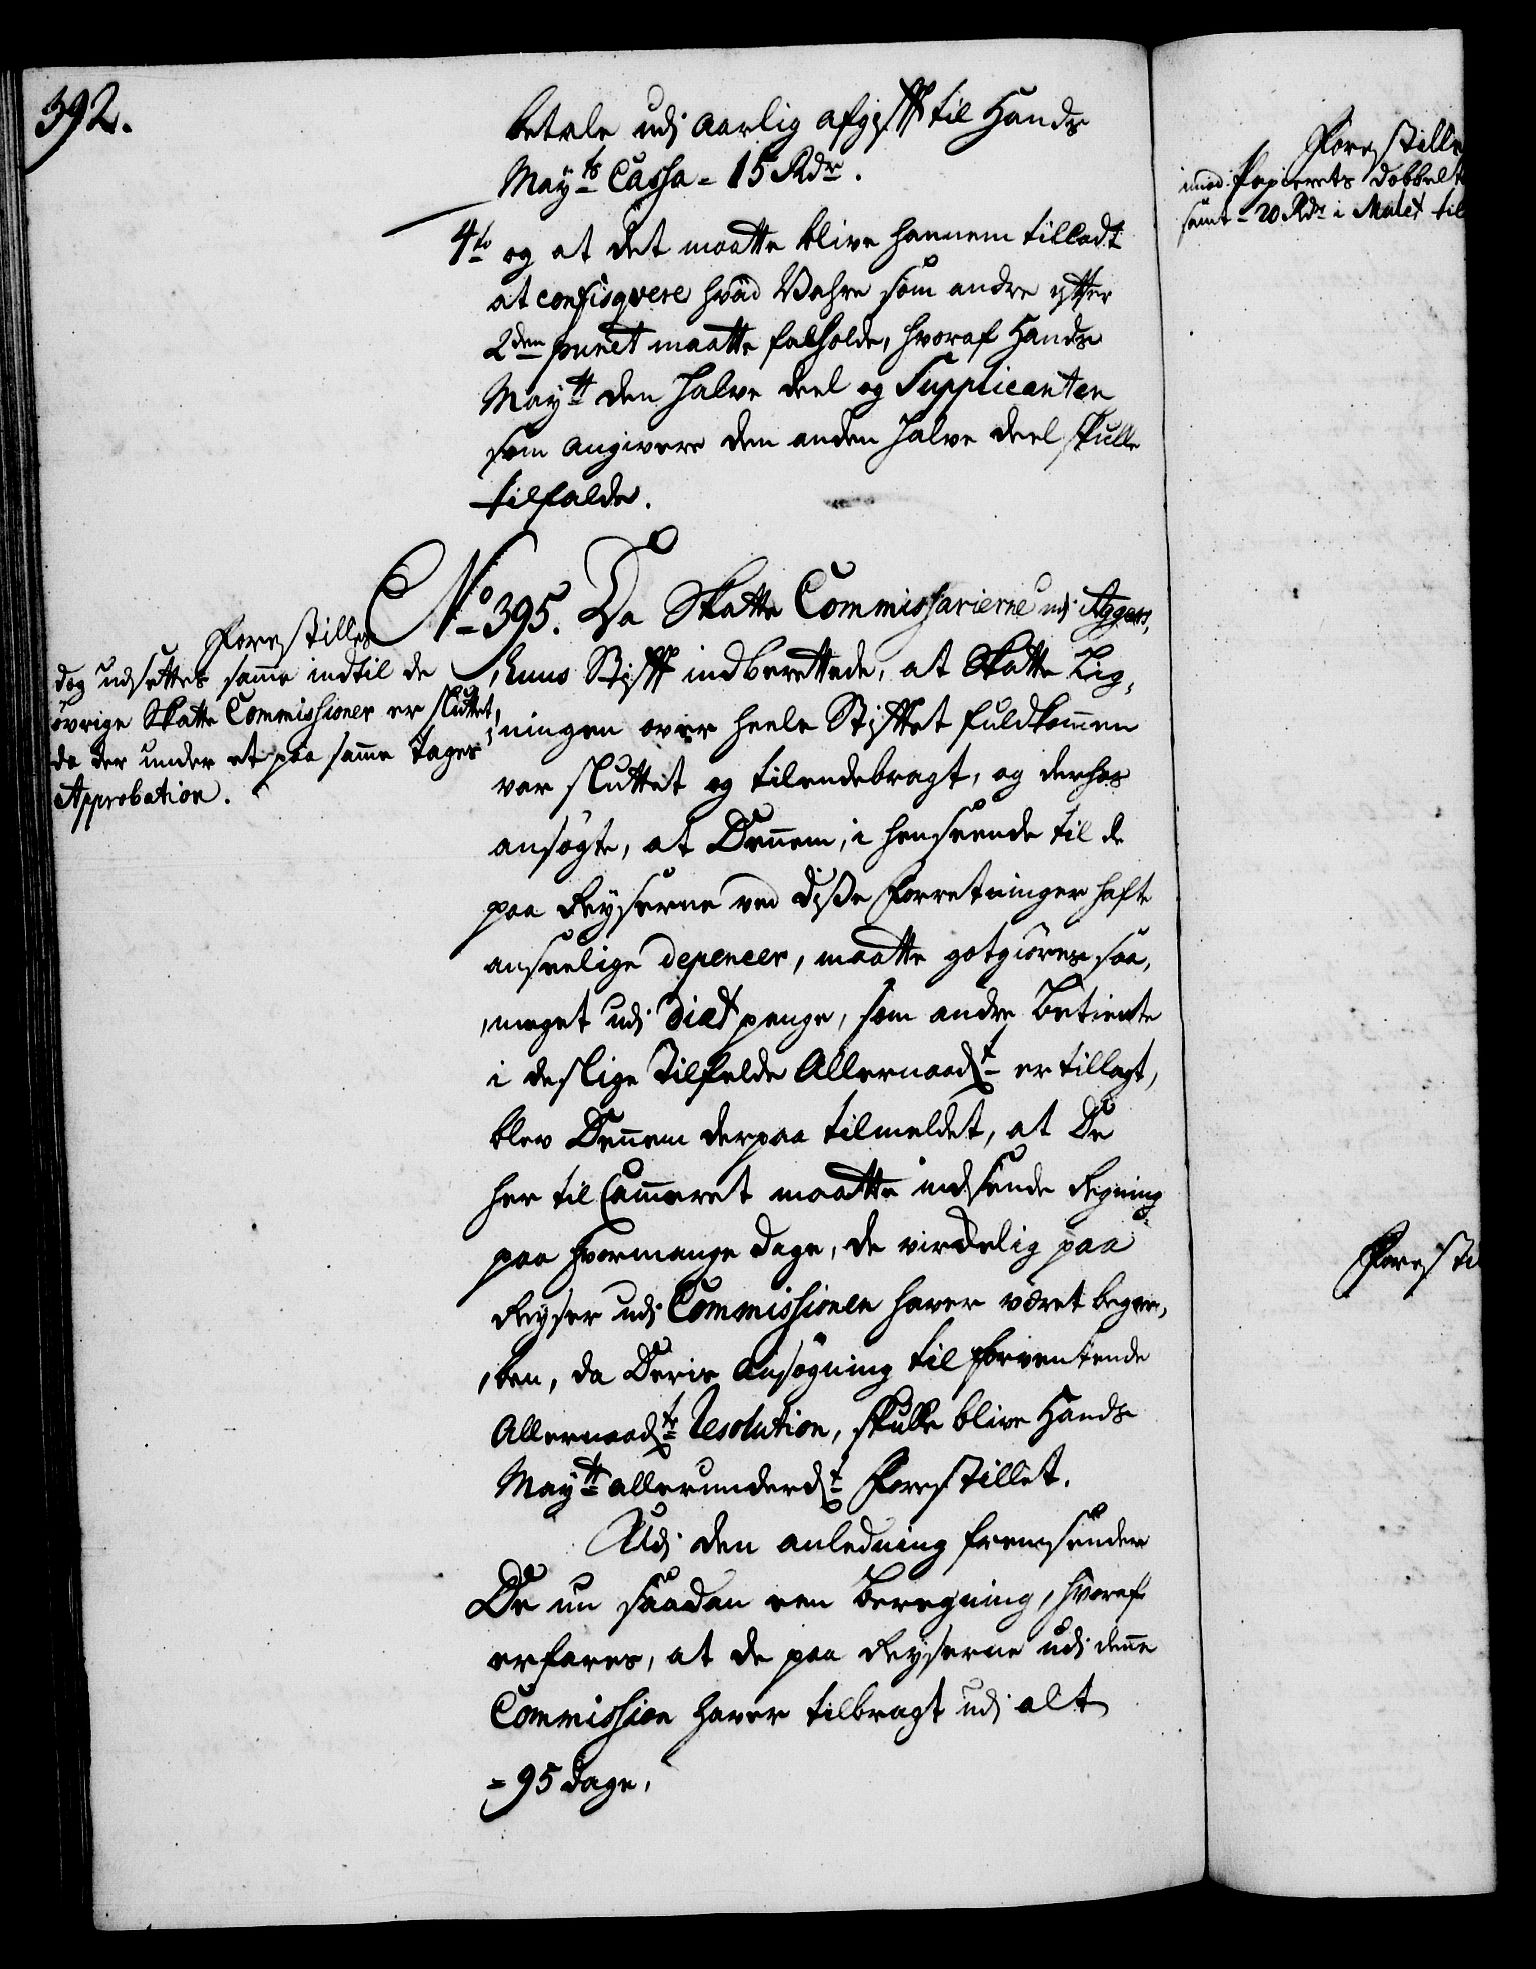 392.
betale udj aarlig afgifft til Hands
May.ts Cassa - 15 Rdr.
4to og at det maatte blive hannem tilladt
at confisqvere hvad Vahre som andre efter
2den punct maatte falholde, hvoraf Hands
Maytt den halve deel og Supplicanten
som angivere den anden halve deel skulle
tilfalde.
No 395. Da Skatte Commissarierne udj Aggers,
,huus Stifft indberettede, at Skatte Lig,
,ningen over heele Stifftet fuldkommen
var sluttet og tilendebragt, og derhos
ansøgte, at Dennem, i henseende til de
paa Reyserne ved disse Forretninger hafte
anseelige depencer, maatte godtgiøres saa,
,meget udj Diæt penge, som andre Betiente
i deslige Tilfelde Allernaadst er tillagt,
blev Dennem derpaa tilmeldet, at De
her til Cammeret maatte indsende Regning
paa hvormange dage, de virckelig paa
Reyser udj Commissionen haver været begre,
,ben, da Deris Ansøgning til forventende
Allernaadste Resolution, skulle blive Hands
Maytt allerunderdst Forestillet.
Udj den anledning fremsender
De nu saadan een Beregning, hvoraf
erfares, at de paa Reyserne udj denne
Commission haver tilbragt udj alt
= 95 dage,
Forestilles
dog udsettes samme indtil de
øvrige Skatte Commissioner er sluttet,
da der under et paa samme tages
Approbation.
Forestille
imod Papierets dobbelt
samt - 20 Rdr i Mulct til
Foresti